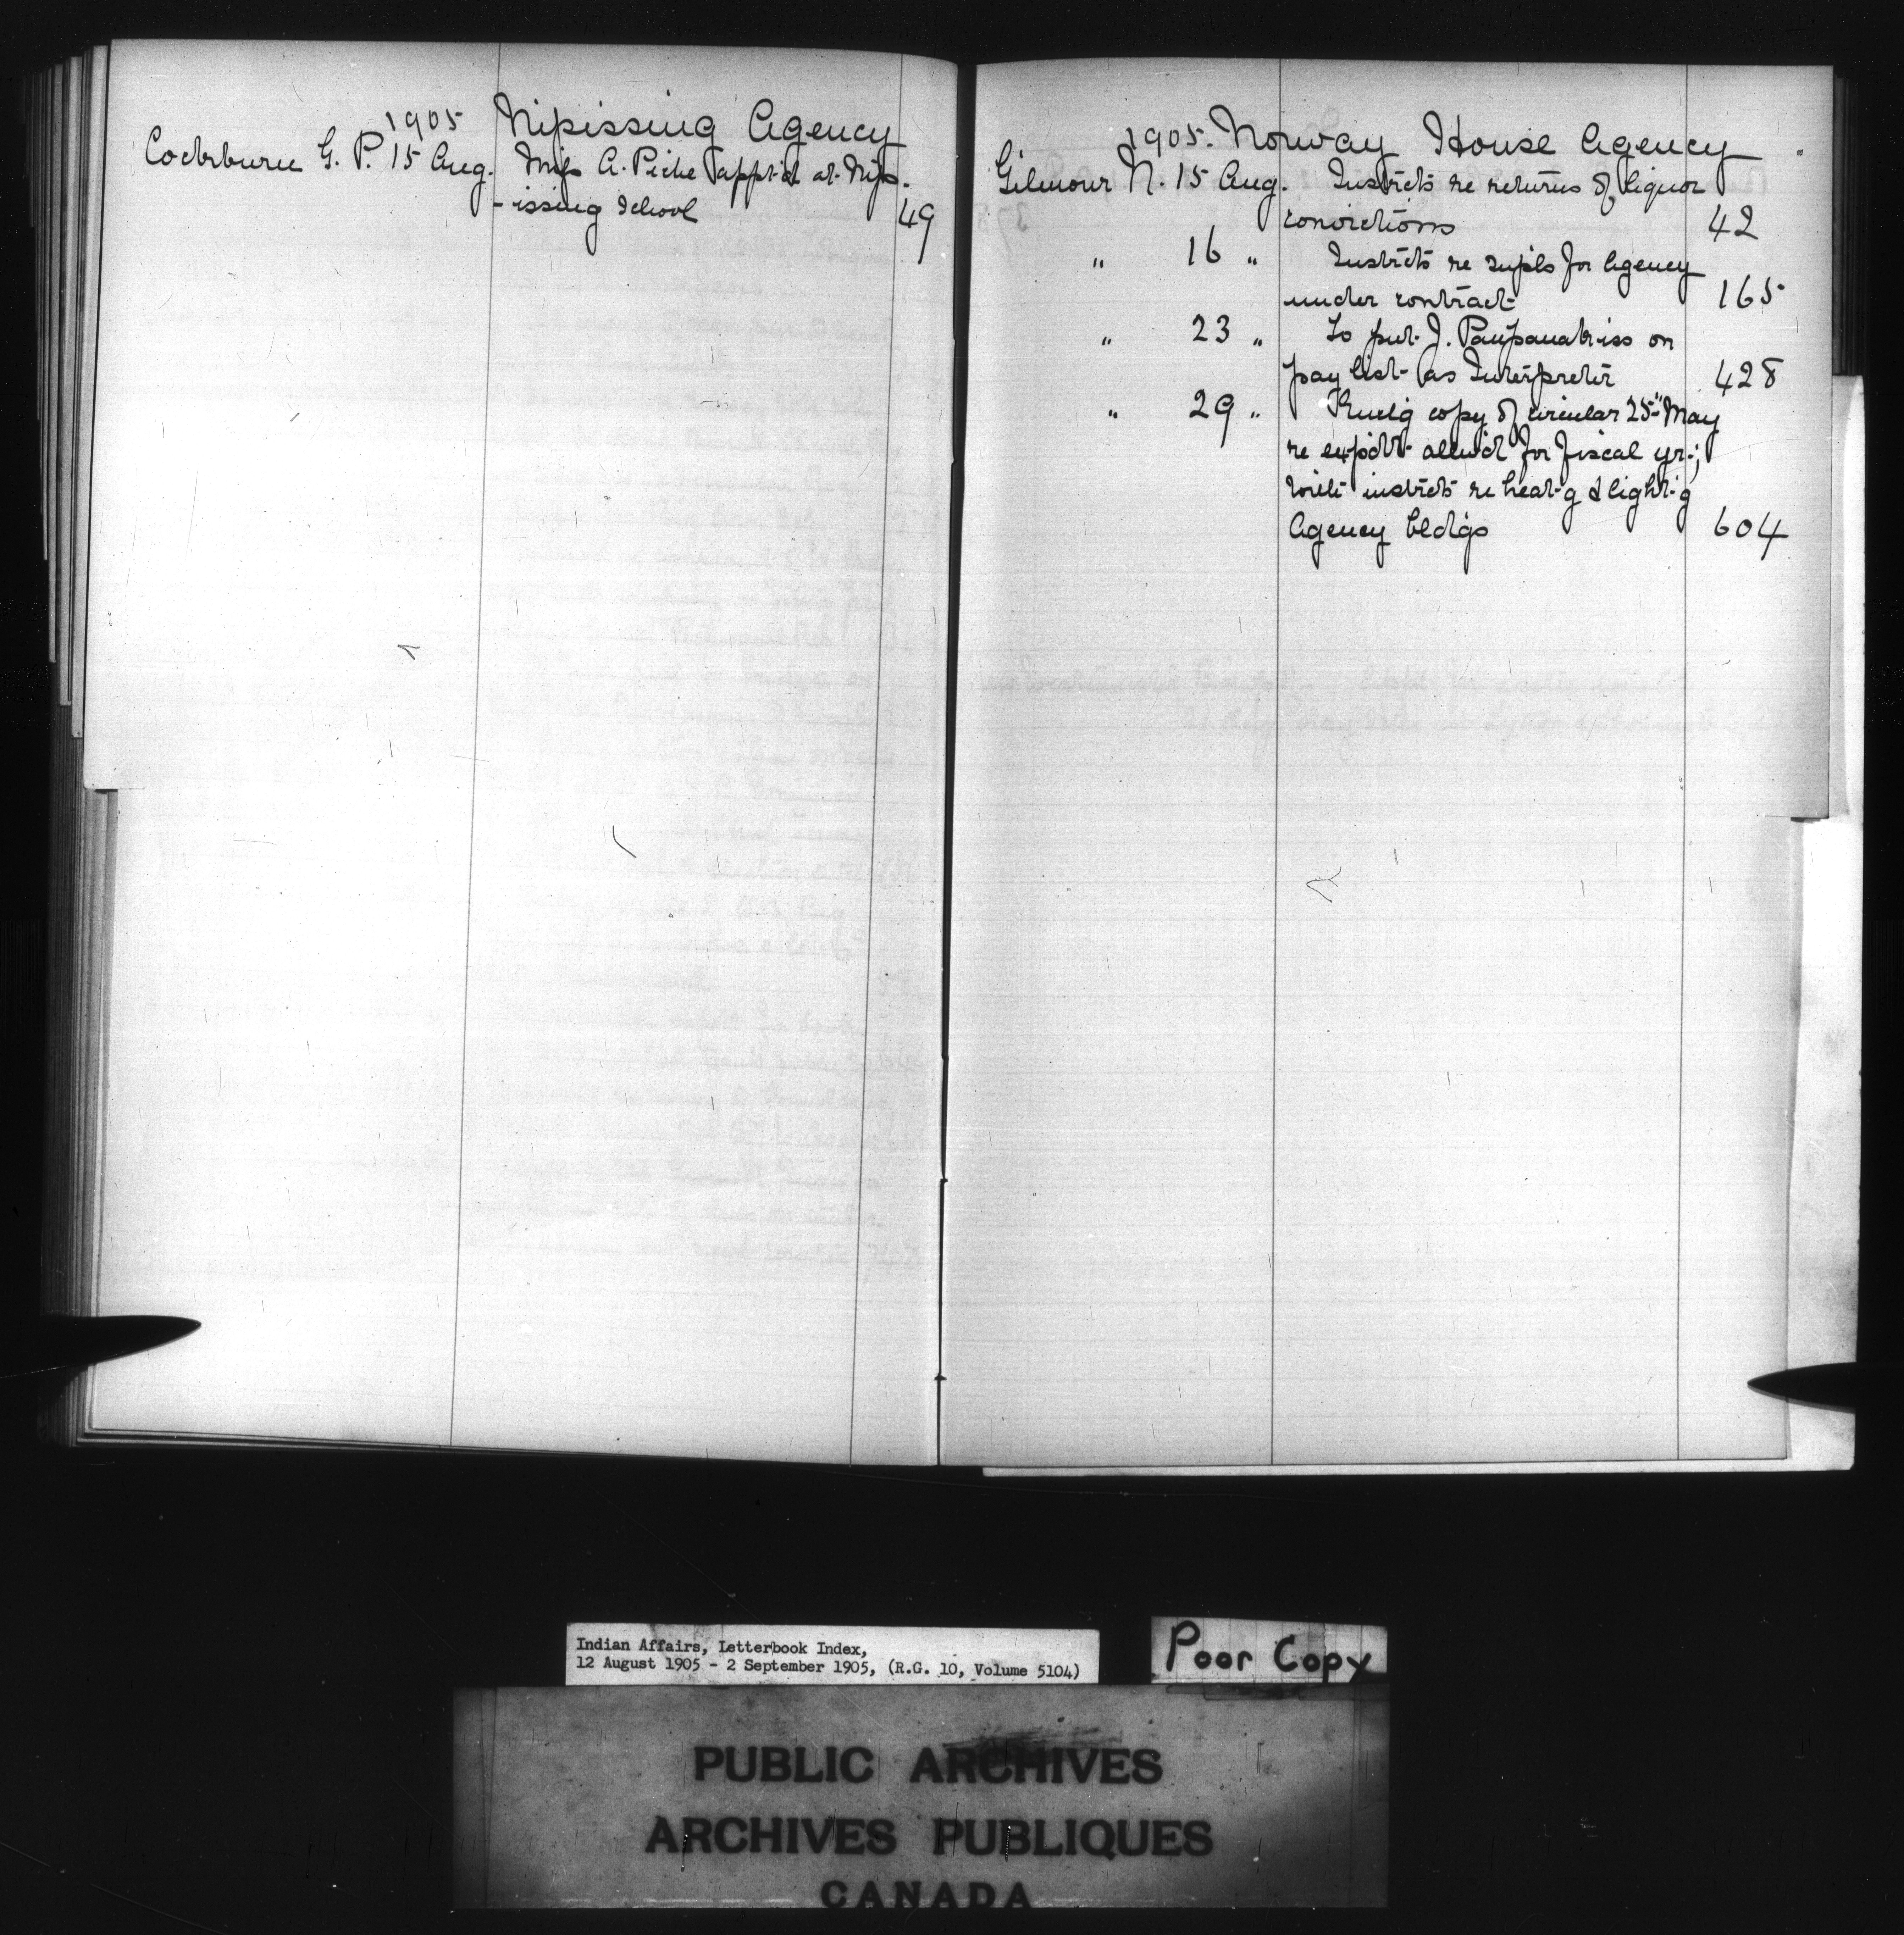 1905 Nipissing Agency
Cockburn G. P. 15 Aug. Miss A. Piche app't'd at Nip-
-issing School 49
1905. Norway House Agency
Gilmour N. 15 Aug. Instrcts re returns of liquor
convictions 42
" 16 " Instrcts re supls for Agency
under contract 165
" 23 " To put J. Paupanakiss on
pay list as Interpreter 428
" 29 " copy of circular 25" May
re expdt allw'd for fiscal yr.;
instrcts re heat-g & light-g
Agency bldgs 604
Indian Affairs, Letterbook Index,
12 August 1905 - 2 September 1905, (R.G. 10, Volume 5104)
Poor Copy
PUBLIC ARCHIVES
ARCHIVES PUBLIQUES
CANADA